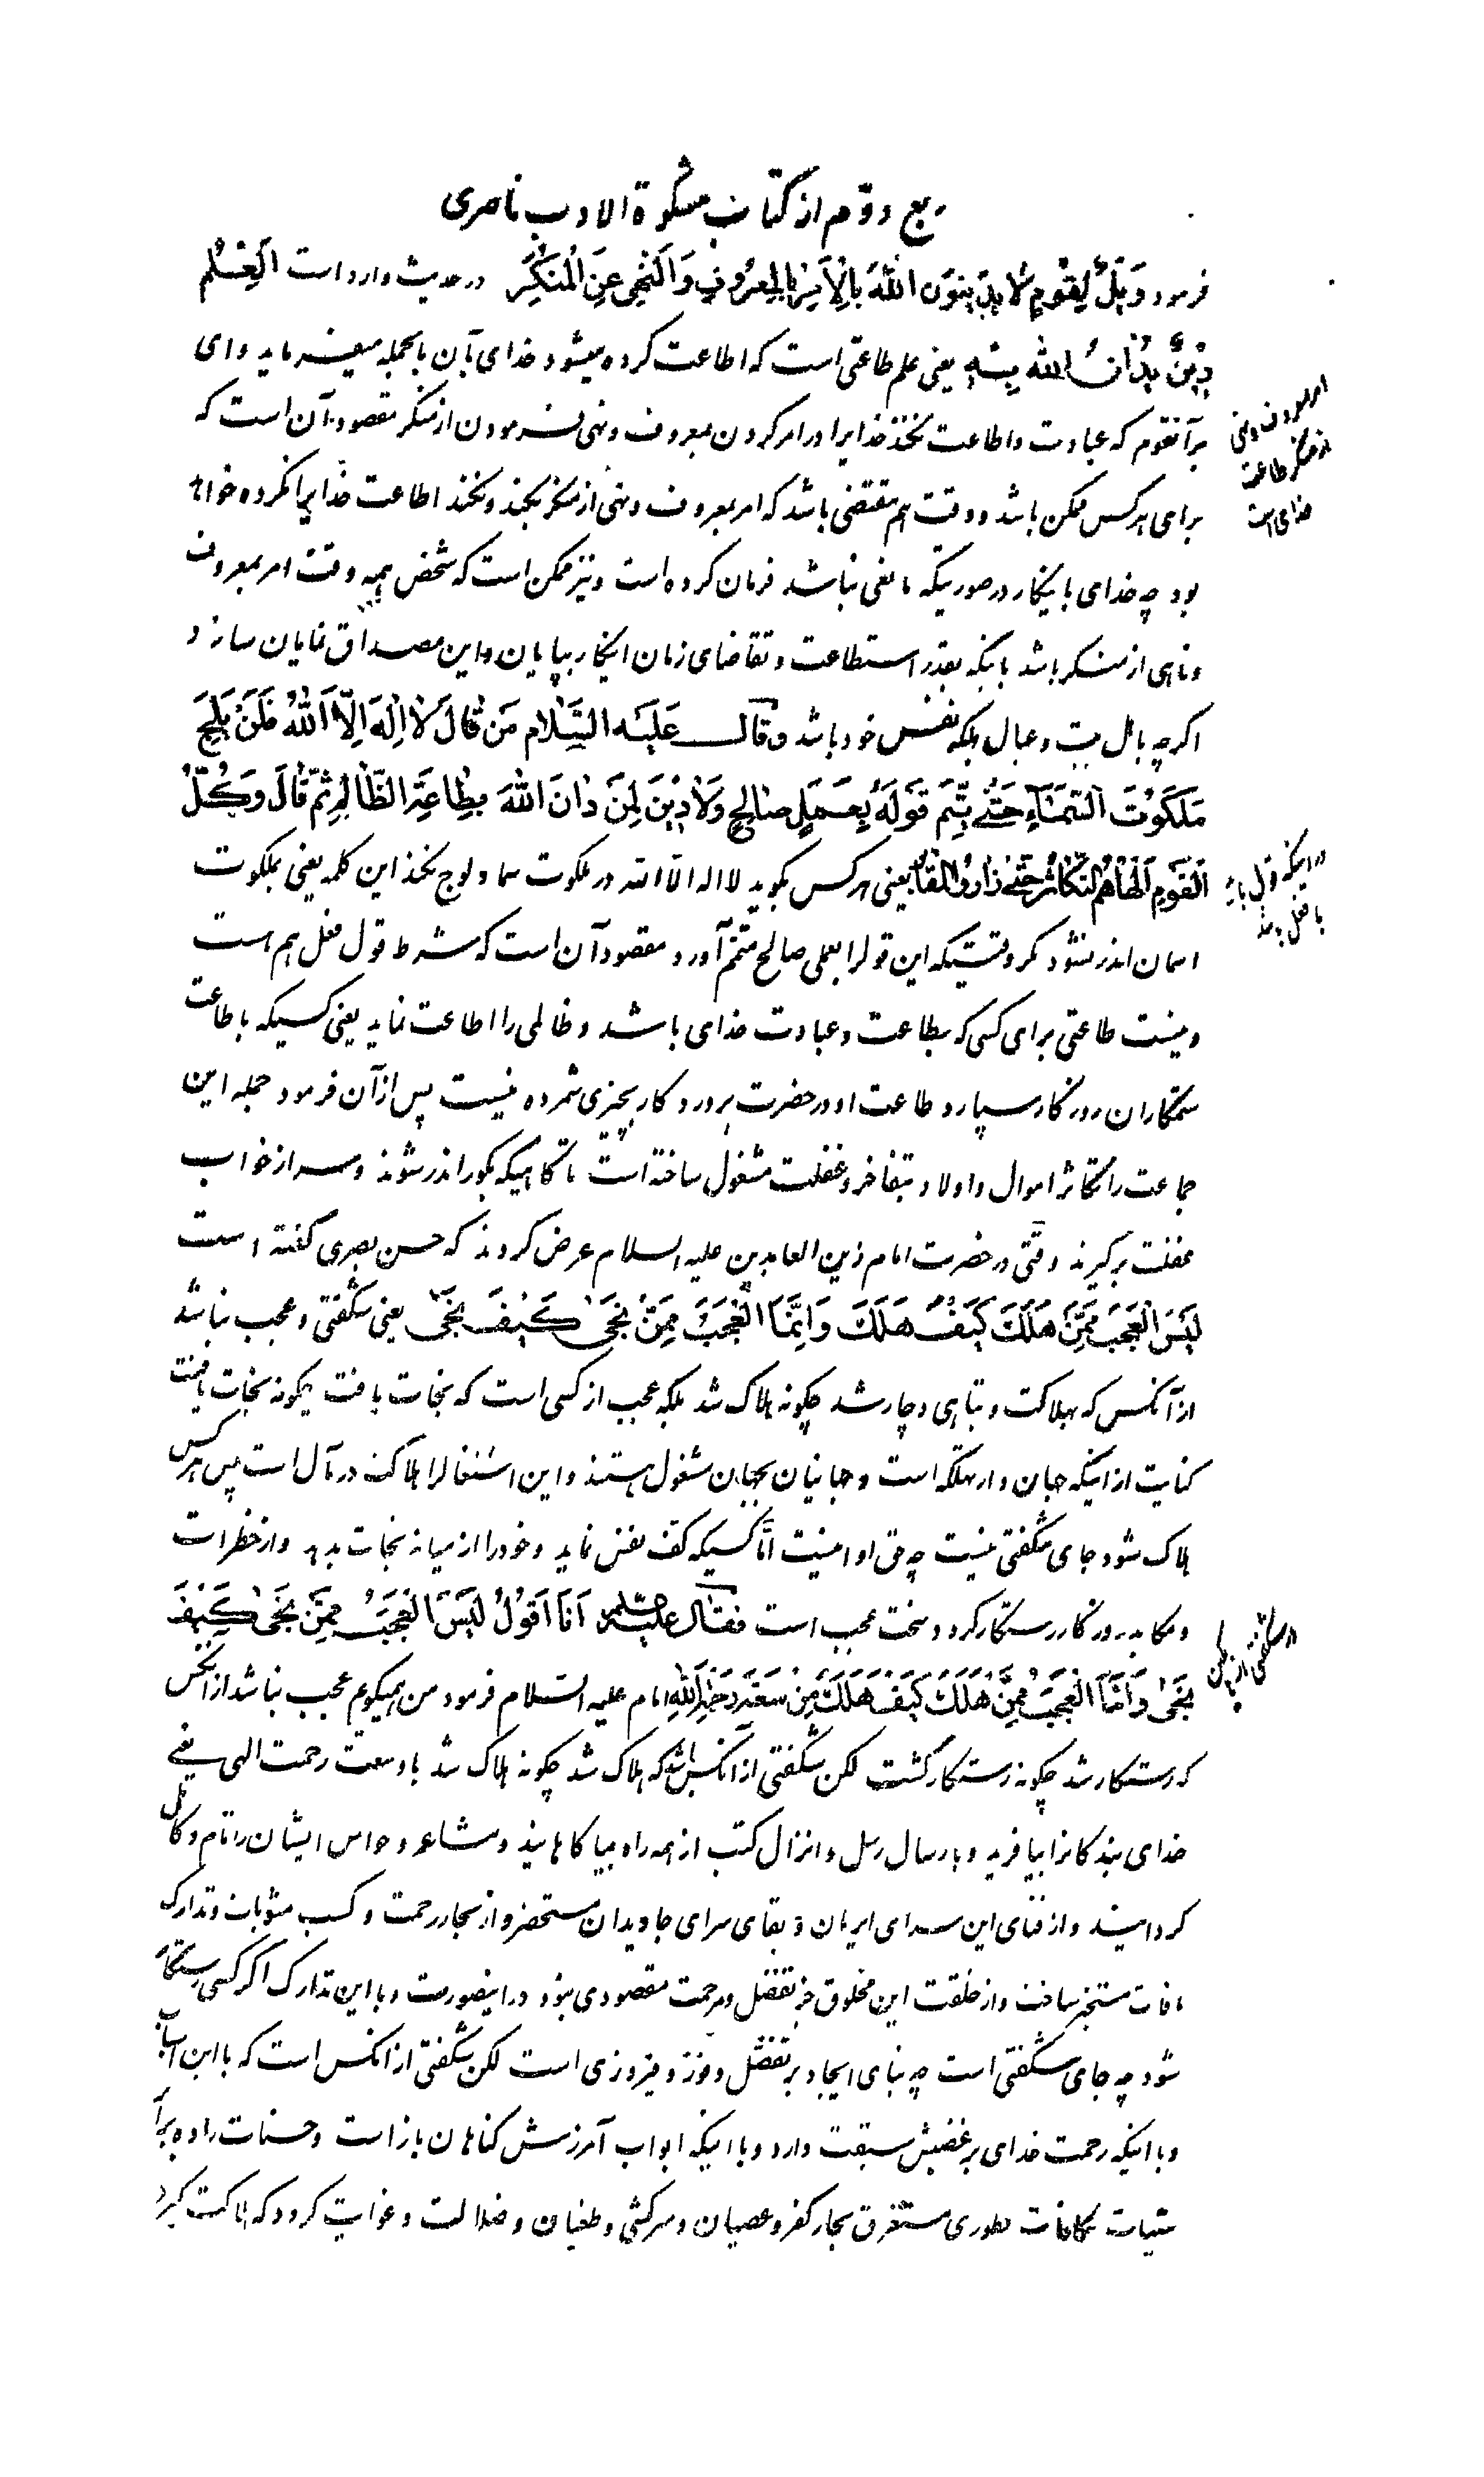 ربع دوّم از کتاب مشکوة الادب ناصری
فرمود وَیْلٌ لِقَوْمٍ لا یَدِینُونَ اللّٰهَ بِالْاَمْرِ بِالْمَعْرُوفِ وَالنَّهْیِ عَنِ الْمُنْکَرِ در حدیث وارد است اَلْعِلْمُ
دِیْنٌ یُدٰانُ اللّٰه بِهِ یعنی علم طاعتی است که اطاعت کرده میشود خدای بآن بالجمله میفرماید وای
برآنقوم که عبادت و اطاعت نکنند خدایرا در امر کردن بمعروف و نهی فرمودن از منکر مقصود آن است که
امر بمعروف و نهی
از منکر طاعت
خدای است
برای هر کس ممکن باشد و وقت هم مقتضی باشد که امر بمعروف و نهی از منکر بکند و نکند اطاعت خدایرا نکرده خواهد
بود چه خدای باینکار در صورتیکه مانعی نباشد فرمان کرده است و نیز ممکن است که شخص همه وقت امر بمعروف
و ناهی از منکر باشد باینکه بقدر استطاعت و تقاضای زمان اینکار بپایان و این مصداق نمایان سازد و
اگرچه باهل بیت و عیال بلکه نفس خود باشد و قال عَلَیْهِ السَّلام مَنْ قالَ لا اِلٰهَ اِلّا اللّٰهُ فَلَنْ یَلِجَ
مَلَکُوتَ السَّمٰاءِ حَتّٰی یُتِمَّ قَوْلَهُ بِعَمَلٍ صٰالِحٍ وَلا دِیْنَ لِمَنْ دٰانَ اللّٰهَ بِطٰاعَةِ الظّٰالِمِ ثُمَّ قٰالَ وَکُلُّ
الْقَوْمِ اَلْهٰاهُمُ التَّکٰاثُرُ حَتّٰی زٰارُوا الْمَقٰابِرَ یعنی هر کس بگوید لا اله الّا اللّه در ملکوت سما ولوج نکند این کلمه یعنی بملکوت
در اینکه قول باید
با فعل باشد
اسمان اندر نشود مگر وقتیکه این قولرا بعملی صالح متمّم آورد مقصود آن است که شرط قول فعل هم هست
و نیست طاعتی برای کسی که بطاعت و عبادت خدای باشد و ظالمی را اطاعت نماید یعنی کسیکه باطاعت
ستمکاران روزگار سپارد طاعت او در حضرت پروردگار بچیزی شمرده نیست پس از آن فرمود جمله این
جماعت را تکاثر اموال و اولاد و بتفاخر و غفلت مشغول ساخته است تا گاهیکه بگور اندر شوند و سر از خواب
غفلت برگیرند وقتی در حضرت امام زین العابدین علیه السلام عرض کردند که حسن بصری گفته است
لَیْسَ الْعَجَبُ مِمَّنْ هَلَکَ کَیْفَ هَلَکَ وَاِنَّمَا الْعَجَبُ مِمَّنْ نَجٰی کَیْفَ نَجٰی یعنی شگفتی و عجب نباشد
از آنکس که بهلاکت و تباهی دچار شد چگونه هلاک شد بلکه عجب از کسی است که نجات یافت چگونه نجات یافت
کنایت از اینکه جهان دار هلکه است و جهانیان بجهان مشغول هستند و این اشتغالرا هلاکت در مآل است پس هر کس
هلاک شود جای شگفتی نیست چه حق او اینست امّا کسیکه کفّ نفس نماید و خود را از میانه نجات بدهد و از خطرات
و مکاید روزگار رستگار گردد سخت عجب است فقال علیه السلم اَنَا اَقُولُ لَیْسَ الْعَجَبُ مِمَّنْ نَجٰی کَیْفَ
نَجٰی وَاِنَّمَا الْعَجَبُ مِمَّنْ هَلَکَ کَیْفَ هَلَکَ مِنْ سَعَةِ رَحْمَةِ اللّٰهِ امام علیه السّلام فرمود من همیگویم عجب نباشد از آنکس
که رستگار شد چگونه رستگار گشت لکن شگفتی از آنکس باشد که هلاک شد چگونه هلاک شد با وسعت رحمت الهی یعنی
خدای بندگانرا بیافرید و بارسال رسل و انزال کتب از همه راه بیاگاهانید و مشاعر و حواس ایشان را تام و کامل
گردانید و از فنای این سرای ایرمان و بقای سرای جاویدان مستحضر و از بحار رحمت و کسب مثوبات و تدارک
مافات مستخبر ساخت و از خلقت این مخلوق جز تفضّل و مرحمت مقصودی نبود در اینصورت و با این تدارک اگر کسی رستگار
شود چه جای شگفتی است چه بنای ایجاد بر تفضّل و فوز و فیروزی است لکن شگفتی از آنکس است که با این اسباب
و با اینکه رحمت خدای بر غضبش سبقت دارد و با اینکه ابواب آمرزش گناهان باز است و حسنات را ده برابر
سیّئات مکافات بطوری مستغرق بحار کفر و عصیان و سرکشی و طغیان و ضلالت و غوایت گردد که هلاکت گیرد